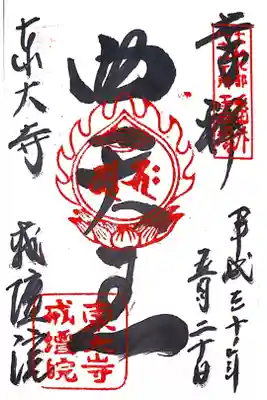 奉拝
平成三十年
五月二十日
四天王
東大寺
戒壇院
東大寺
戒壇院